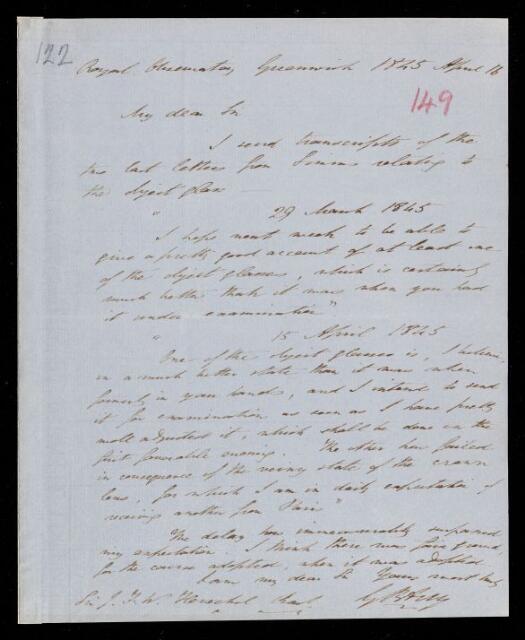 122
Royal Observatory Greenwich 1845 April 16
149
My dear Sir
I send transcripts of the
two last letters from Simms relating to
the object glass —
" 29 March 1845
I hope next week to be able to
give a pretty good account of at least one
of the object glasses, which is certainly
much better than it was when you had
it under examination"
" 15 April 1845
One of the object glasses is, I believe,
in a much better state than it was when
formerly in your hands, and I intend to send
it for examination as soon as I have pretty
well adjusted it, which shall be done on the
first favorable evening. The other has failed
in consequence of the veiny state of the crown
lens, for which I am in daily expectation of
receiving another from Paris"
The delay has immeasurably surpassed
my expectation. I think there was fair ground
for the course adopted, when it was adopted
I am my dear Sir Yours most truly
Sir J. F. W. Herschel Bart. G B Airy